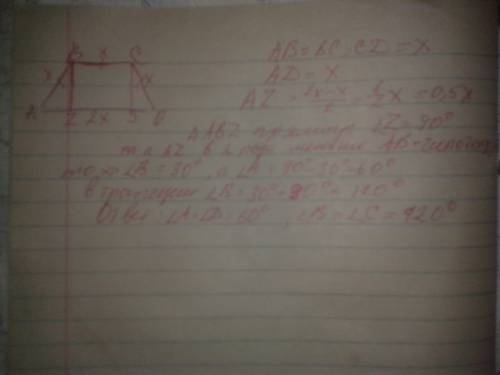 B x C
x x
A Z 2x D
AB = BC = CD = x
AD = x
AZ = 2x-x/2 = 1/2 x = 0,5x
ΔABZ прямоуг ∠Z = 90°
т к AZ в 2 раза меньше AB
то ∠B = 30°, а ∠A = 90°-30°=60°
В трапеции ∠B = 30°+90° = 120°
Ответ: ∠A=∠D=60°, ∠B=∠C=120°